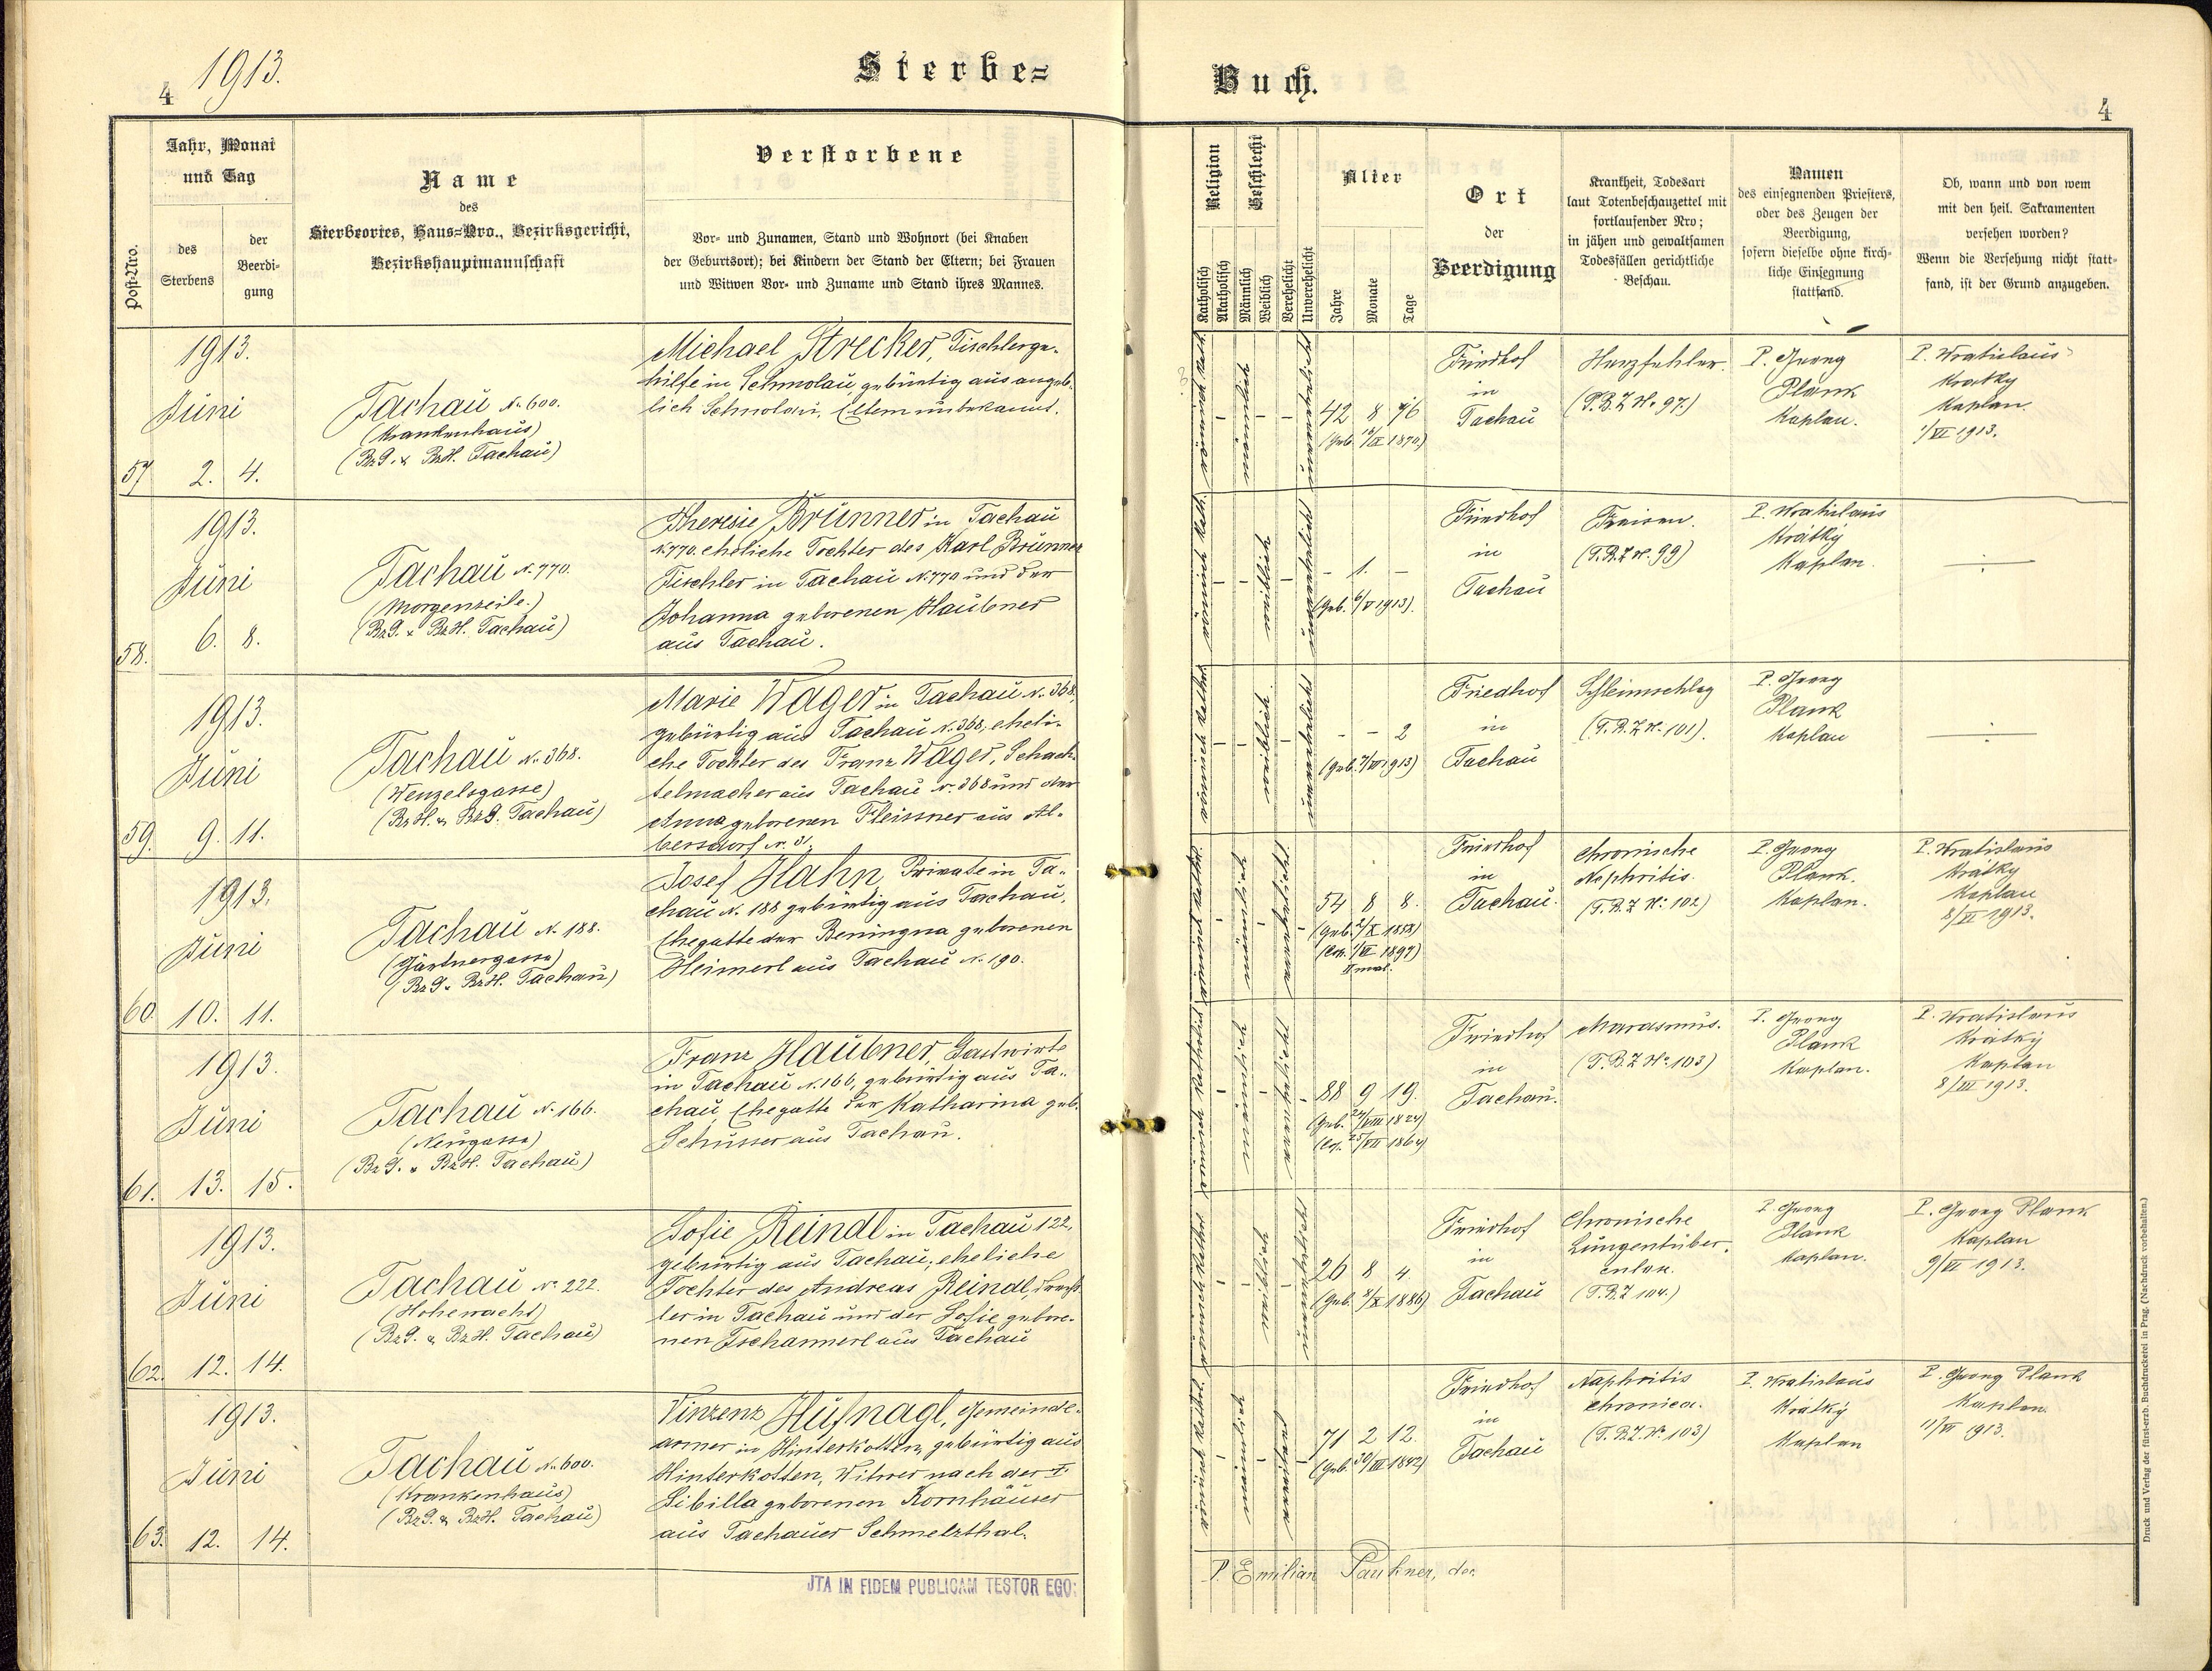 4 1913.
Sterbe= Buch.
4
Post-Nro.
Jahr, Monat
und Tag
des
Sterbens
der
Beerdi-
gung
Name
des
Sterbeortes, Haus=Nro., Bezirksgericht,
Bezirkshauptmannschaft
Verstorbene
Vor- und Zunamen, Stand und Wohnort (bei Knaben
der Geburtsort); bei Kindern der Stand der Eltern; bei Frauen
und Witwen Vor- und Zuname und Stand ihres Mannes.
Religion
Katholisch
Akatholisch
Geschlecht
Männlich
Weiblich
Verehelicht
Unverehelicht
Alter
Jahre
Monate
Tage
Ort
der
Beerdigung
Krankheit, Todesart
laut Totenbeschauzettel mit
fortlaufender Nro;
in jähen und gewaltsamen
Todesfällen gerichtliche
Beschau.
Namen
des einsegnenden Priesters,
oder des Zeugen der
Beerdigung,
sofern dieselbe ohne kirch-
liche Einsegnung
stattfand.
Ob, wann und von wem
mit den heil. Sakramenten
versehen worden?
Wenn die Versehung nicht statt-
fand, ist der Grund anzugeben.
57
1913.
Juni
2. 4.
Tachau N. 600.
(Krankenhaus)
(Bz.G. & BzH. Tachau)
Michael Strecker, Tischlerge-
hilfe in Schmolau, gebürtig aus angeb-
lich Schmolau, Eltern unbekannt.
katholisch römisch
männlich
unverehelicht
42 8
(Geb. /IX 1870)
Friedhof
in
Tachau
Herzfehler.
(T.B.Z N. 97.)
P. Georg
Plank
Kaplan.
P. Wratislaus
Krátky
Kaplan.
1/VI 1913.
58.
1913.
Juni
6. 8.
Tachau N. 770.
(Morgenzeile.)
(BzG. & BzH. Tachau)
Theresie Brünner in Tachau
N. 770. eheliche Tochter des Karl Brünner
Tischler in Tachau N. 770 und der
Johanna geborenen Haubner
aus Tachau.
katholisch römisch
weiblich
unverehelicht
- 1. -
(Geb. 6/V 1913).
Friedhof
in
Tachau
Fraisen.
(T.B.Z N. 99)
P. Wratislaus
Krátky
Kaplan.
59.
1913.
Juni
9. 11.
Tachau N. 368.
(Wenzelsgasse)
(BzH. & BzG. Tachau)
Marie Wager in Tachau N. 368,
gebürtig aus Tachau N. 368, eheli-
che Tochter des Franz Wager, Schach-
telmacher aus Tachau N. 368 und der
Anna geborenen Fleissner aus Al-
bersdorf N. 31.
katholisch römisch
weiblich
unverehelicht
- - 2
(Geb. 7/VI 1913)
Friedhof
in
Tachau
Schleimschlag
(T.B.Z N. 101).
P. Georg
Plank
Kaplan
60.
1913.
Juni
10. 11.
Tachau N. 188.
(Gärtnergasse)
(BzG. & BzH. Tachau)
Josef Hahn Private in Ta-
chau N. 188 gebürtig aus Tachau,
Ehegatte der Beningna geborenen
Heimerl aus Tachau N. 190.
katholisch römisch
männlich
verehelicht
54 8 8.
(Geb. 2/X 1858)
(Cop. 1/VI 1897)
II mal.
Friedhof
in
Tachau.
Chronische
Nephritis.
(T.B.Z N. 102)
P. Georg
Plank.
Kaplan.
P. Wratislaus
Krátky
Kaplan
8/VI 1913.
61.
1913.
Juni
13. 15.
Tachau N. 166.
(Neugasse)
(BzG. & BzH. Tachau)
Franz Haubner, Gastwirt
in Tachau N. 166, gebürtig aus Ta-
chau, Ehegatte der Katharina geb.
Schusser aus Tachau.
katholisch römisch
männlich
verehelicht
88 9 19.
(Geb. 24/VIII 1824)
(Cop. 25/VII 1864)
Friedhof
in
Tachau.
Marasmus.
(T.B.Z N. 103)
P. Georg
Plank
Kaplan.
P. Wratislaus
Krátky
Kaplan
8/III 1913.
62.
1913.
Juni
12. 14.
Tachau N. 222.
(Hohewacht)
(BzG. & BzH. Tachau)
Sofie Reindl in Tachau 122,
gebürtig aus Tachau, eheliche
Tochter des Andreas Reindl,
ler in Tachau und der Sofie gebore-
nen Tschannerl aus Tachau
katholisch römisch
weiblich
unverehelicht
26 8 4
(Geb. /X 1886)
Friedhof
in
Tachau
Chronische
Lungentuber-
culose.
(T.B.Z 104.)
P. Georg
Plank
Kaplan.
P. Georg Plank
Kaplan
9/VI 1913.
63.
1913.
Juni
12. 14.
Tachau N. 600.
(Krankenhaus)
(BzG. & BzH. Tachau)
Vinzenz Hufnagl, Gemeinde-
armer in Hinterkotten, gebürtig aus
Hinterkotten, Witwer nach der †
Sibilla geborenen Kornhäuser
aus Tachauer Schmelzthal.
katholisch römisch
männlich
71 2 12.
(Geb. 30/III 1842)
Friedhof
in
Tachau
Naphritis
chronica.
(T.B.Z. N. 103)
P. Wratislaus
Krátky
Kaplan
P. Georg Plank
Kaplan.
11/VI 1913.
JTA IN FIDEM PUBLICAM TESTOR EGO:
P. Emilian Paukner, dec.
Druck und Verlag der fürst-erzb. Buchdruckerei in Prag. (Nachdruck vorbehalten.)